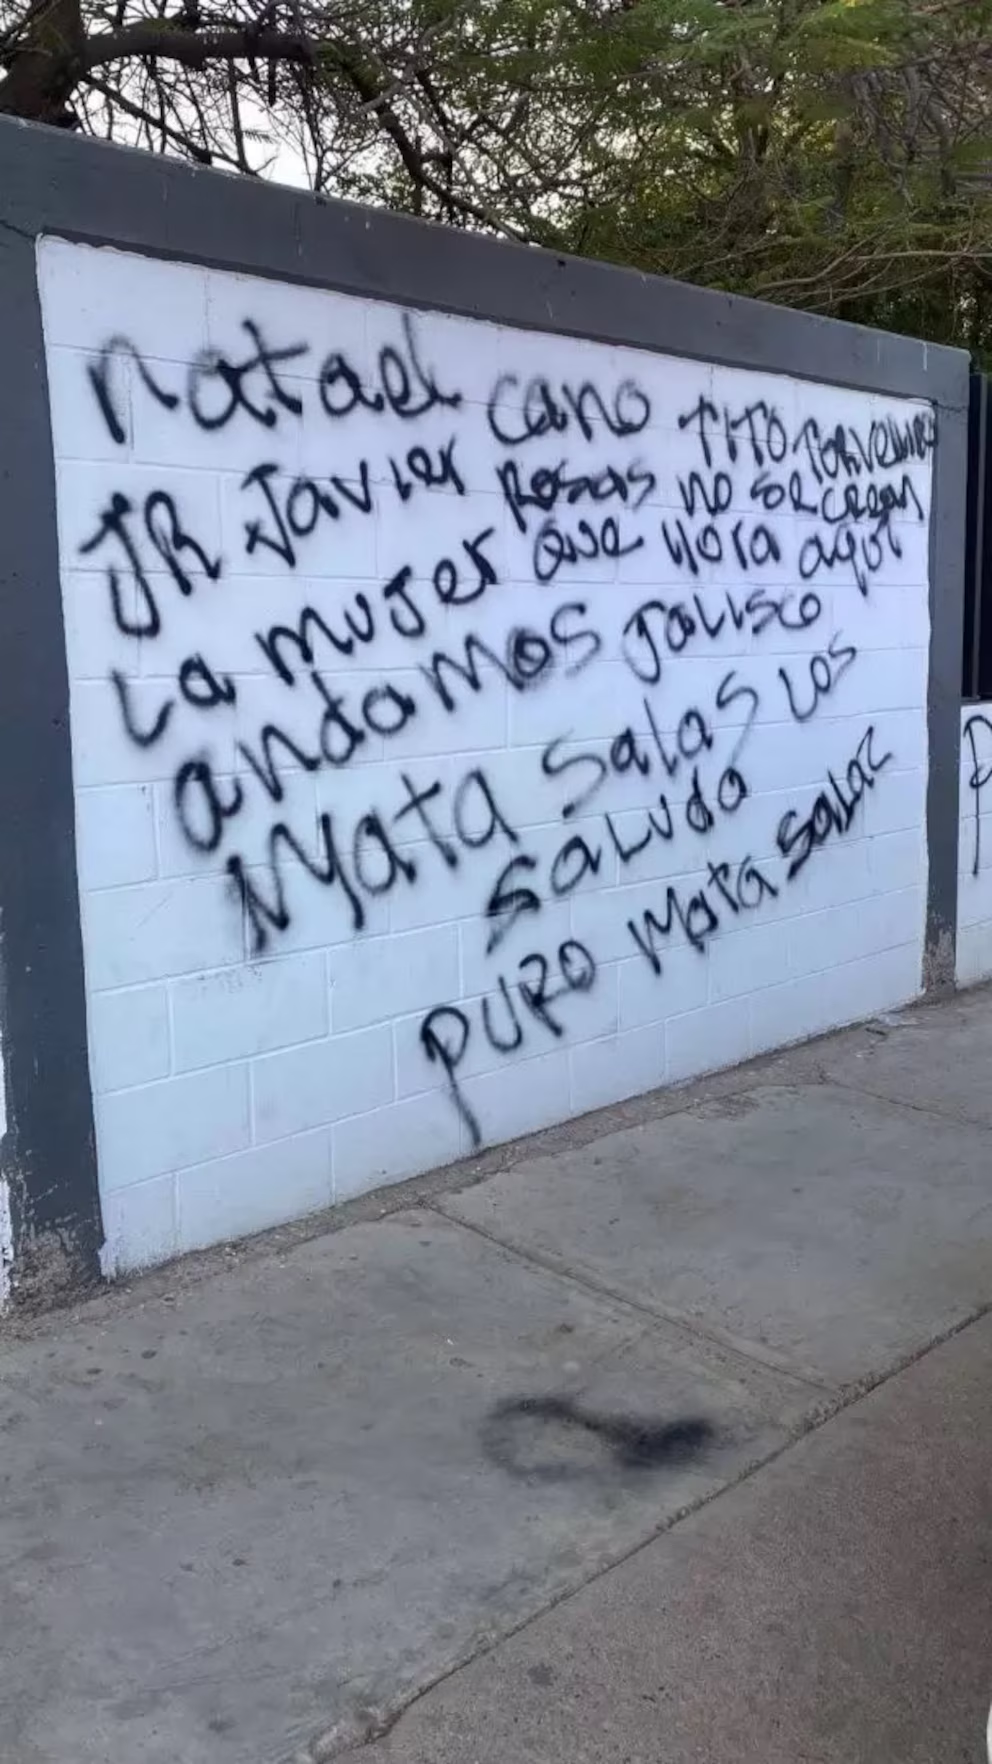 natael cano TITO TORVELLINO
JR Javier Rosas no se crean
La mujer que llora aqui
andamos Jalisco
Mata Salas los
saluda
puro Mata Salas
P